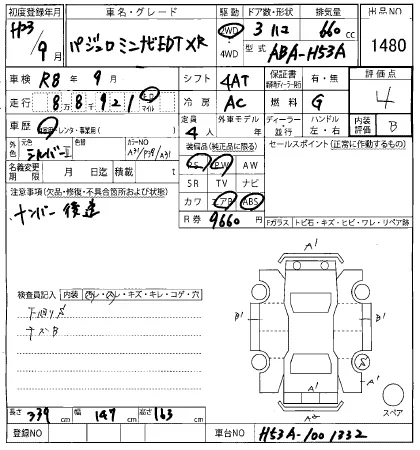 初度登録年月 車名・グレード 駆動 ドア数・形状 排気量 出品NO
H23年 9月 パジェロミニナビEDT XR 2WD 4WD 3ドア 660 cc 1480
型式 ABA-H53A
車検 R8年 9月 シフト 4AT 保証書 有・無 評価点 4
走行 88921 km マイル 冷房 AC 燃料 G
車歴 自家用・レンタ・事業用( ) 定員 4人 外車モデル ディーラー・並行 ハンドル 左・右 内装評価 B
外色 元色 シルバーII 色替 カラーNO A31/P98/A31
装備品(純正品に限る) セールスポイント(正常に作動するもの)
PS PW AW
名義変更期限 月 日迄 積載 t
SR TV ナビ
注意事項(欠品・修復・不具合箇所および状態)
カワ アB ABS
ナンバー後送
R券 9660円
Fガラス トビ石・キズ・ヒビ・ワレ・リペア跡
検査員記入 内装 ヨゴレ・スレ・キズ・キレ・コゲ・穴
下回りS
キズB
A1
B1 B1
A1
A1
スペア
長さ 339 cm 幅 147 cm 高さ 163 cm
登録NO 車台NO H53A-1001332